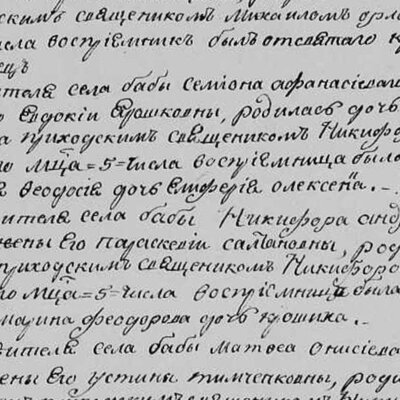 скимъ священикомъ михаиломъ орло
исла воспрїемникъ былъ отсвятаго к
ецъ
ителя села бабы семіона афанасіева
о евдокіи ярошковны, родилась дочь
а приходскимъ священикомъ Никифо
го мц̃а = 5 = числа воспрїемница была
я Феодосїя дочь елиферїя олексенка. –
ителя села бабы Никифора анд
жены его параскевіи салтановны, род
приходскимъ священикомъ Никифоро
го мц̃а = 5 = числа воспрїемница была
марина феодорова дочь ярошиха. –
ителя села бабы матвея онисіева
ены его устины тимченковны, роди